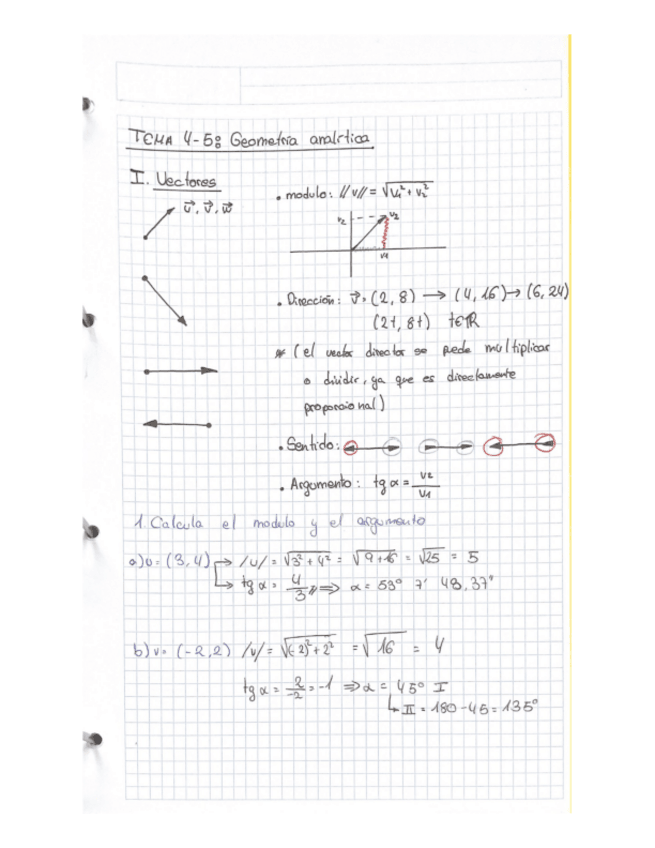 TEMA 4-5: Geometría analítica
I. Vectores
u⃗, v⃗, w⃗
• modulo: //v// = √(v₁² + v₂²)
v₂ v₂
v₁
• Dirección: v⃗ = (2, 8) → (4, 16) → (6, 24)
(2t, 8t) t∈ℝ
* (el vector director se pede multiplicar
o dividir, ya que es directamente
proporcional)
• Sentido:
• Argumento: tg α = v₂/v₁
1. Calcula el modulo y el argumento
a) u = (3, 4) → /u/ = √(3² + 4²) = √(9 + 16) = √25 = 5
↳ tg α = 4/3 // ⇒ α = 53° 7' 48,37"
b) v = (-2, 2) /v/ = √((-2)² + 2²) = √16 = 4
tg α = 2/-2 = -1 ⇒ α = 45° I
↳ II = 180 - 45 = 135°